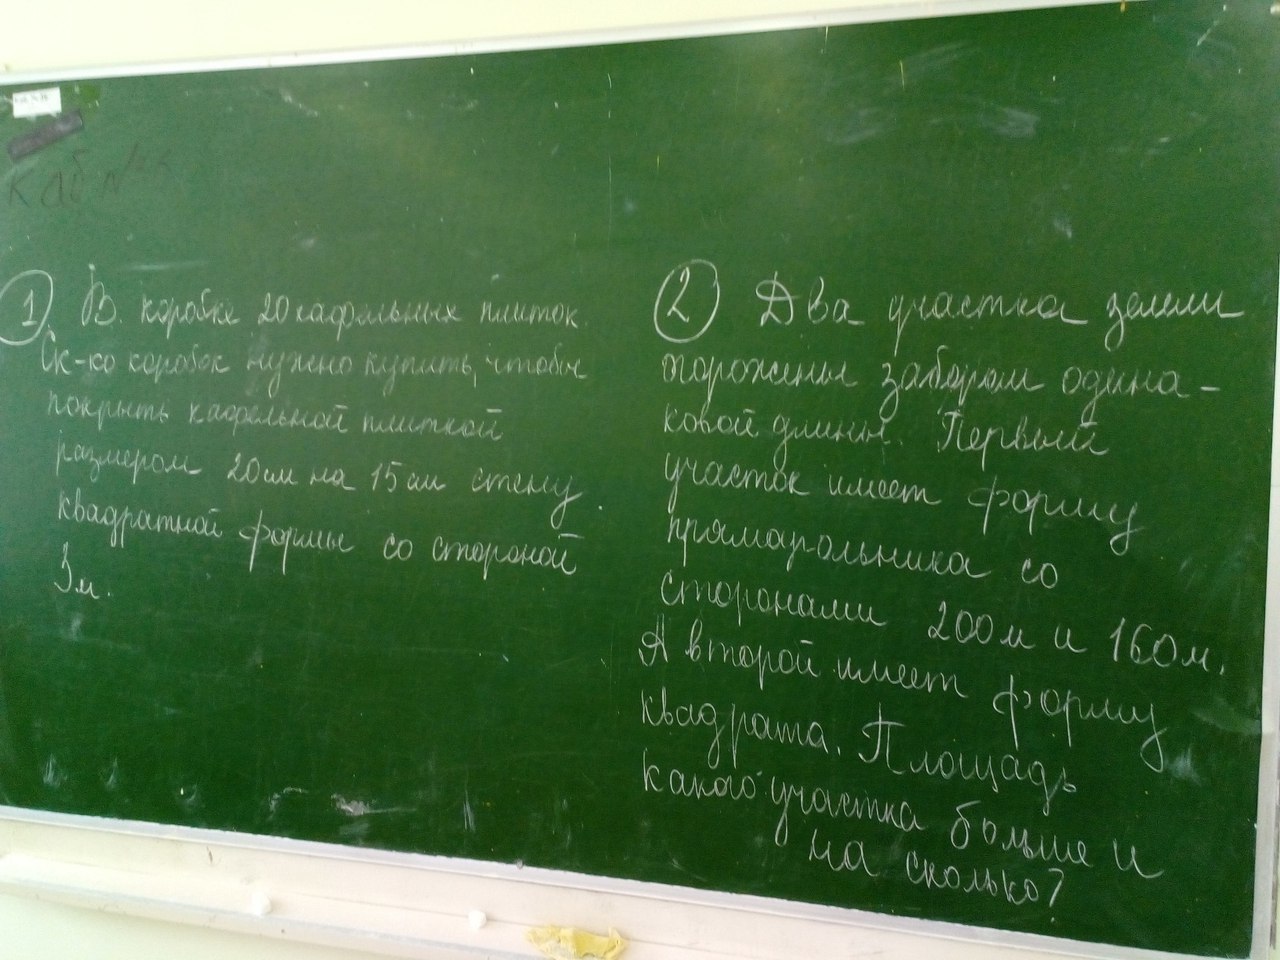 каб №
1 В коробке 20 кафельных плиток.
Ск-ко коробок нужно купить, чтобы
покрыть кафельной плиткой
размером 20см на 15 см стену
квадратной формы со стороной
3м.
2 Два участка земли
огорожены забором одина-
ковой длины. Первый
участок имеет форму
прямоугольника со
сторонами 200м и 160м.
А второй имеет форму
квадрата. Площадь
какого участка больше и
на сколько?